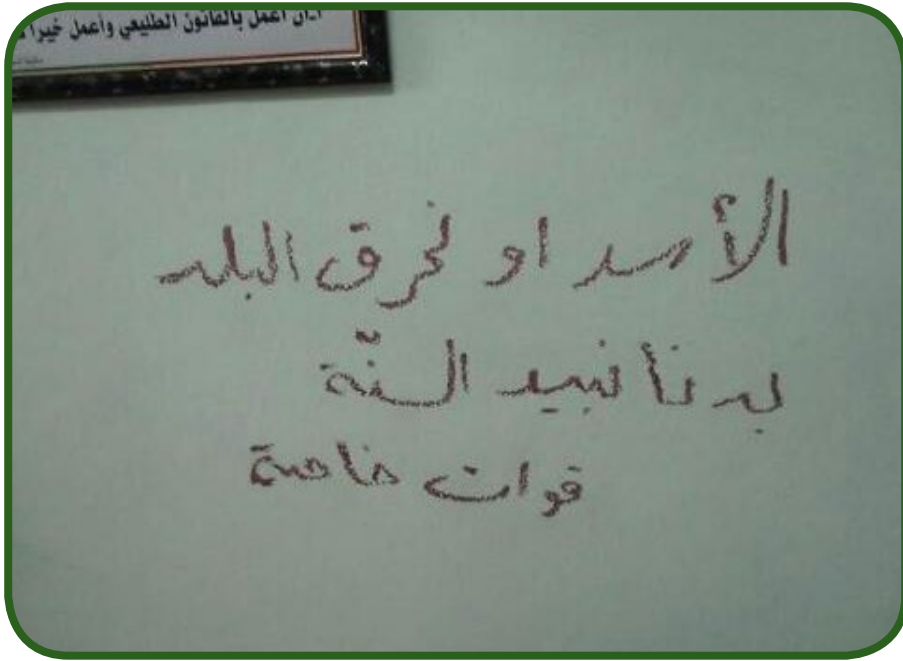 أن أعمل بالقانون الطليعي وأعمل خيرا
الأسد او نحرق البلد
بدنا نبيد السنّة
قوات خاصة